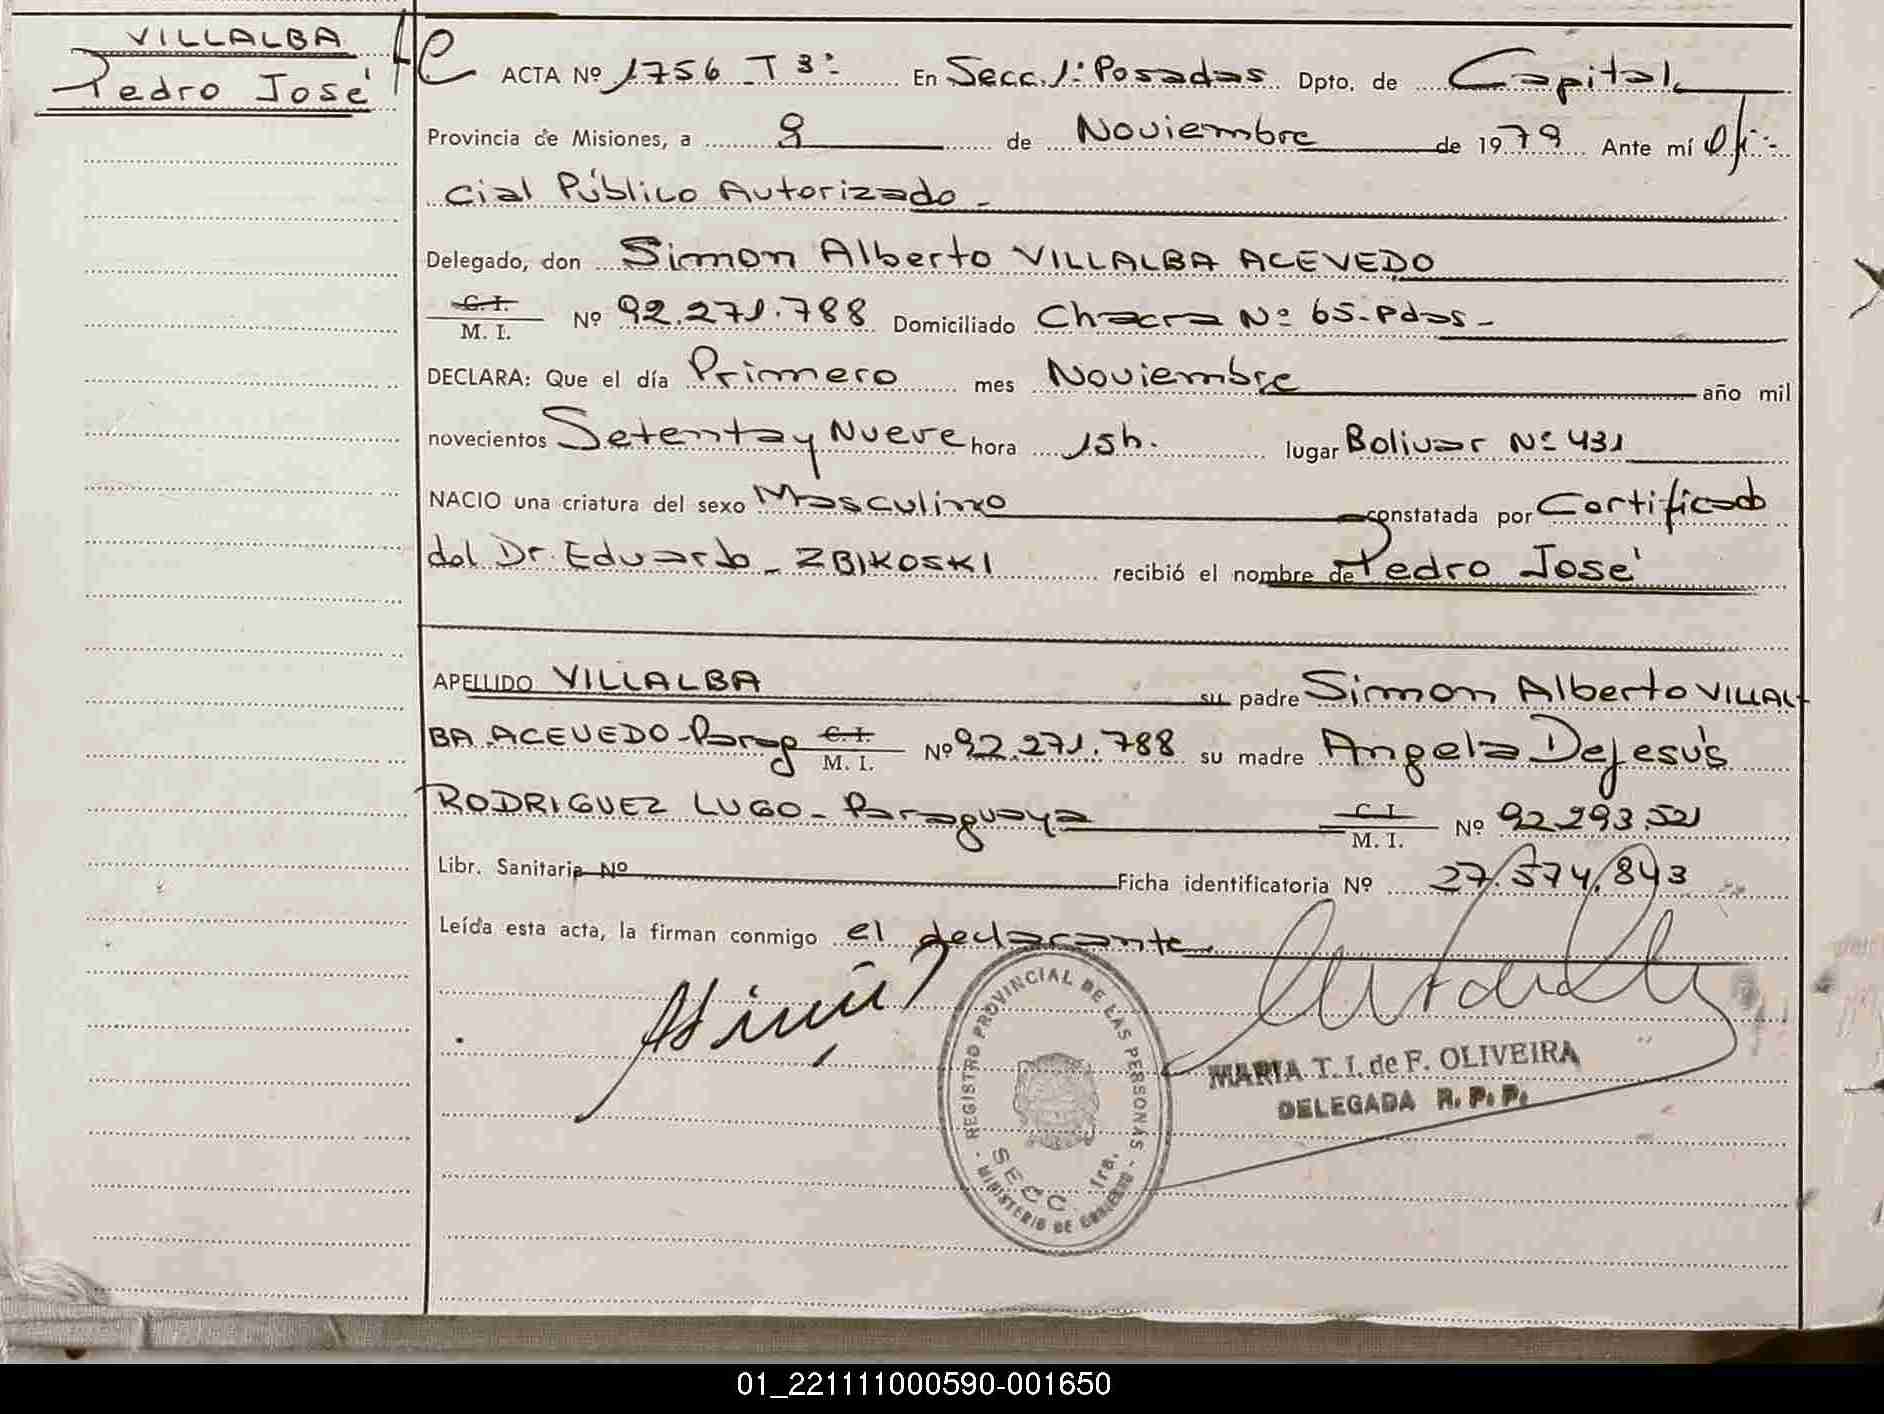 VILLALBA
Pedro José
ACTA Nº 1756 T 3º En Secc. 1ª Posadas Dpto. de Capital
Provincia de Misiones, a 9 de Noviembre de 1979 Ante mí Ofi-
cial Público Autorizado -
Delegado, don Simon Alberto VILLALBA ACEVEDO
C. I.
M. I. Nº 92.271.788 Domiciliado Chacra Nº 65-Pdas-
DECLARA: Que el día Primero mes Noviembre año mil
novecientos Setenta y Nueve hora 15h. lugar Bolivar Nº 431
NACIO una criatura del sexo Masculino constatada por Certificado
del Dr. Eduardo - ZBIKOSKI recibió el nombre de Pedro José
APELLIDO VILLALBA su padre Simon Alberto VILLAL-
BA ACEVEDO-Parag C. I. M. I. Nº 92.271.788 su madre Angela DeJesús
RODRIGUEZ LUGO - Paraguaya C I M. I. Nº 92.293.521
Libr. Sanitaria Nº Ficha identificatoria Nº 27.574.843
Leída esta acta, la firman conmigo el declarante.
REGISTRO PROVINCIAL DE LAS PERSONAS
SECC. 1ra.
MINISTERIO DE GOBIERNO
MARIA T. I. de F. OLIVEIRA
DELEGADA R. P. P.
01_221111000590-001650